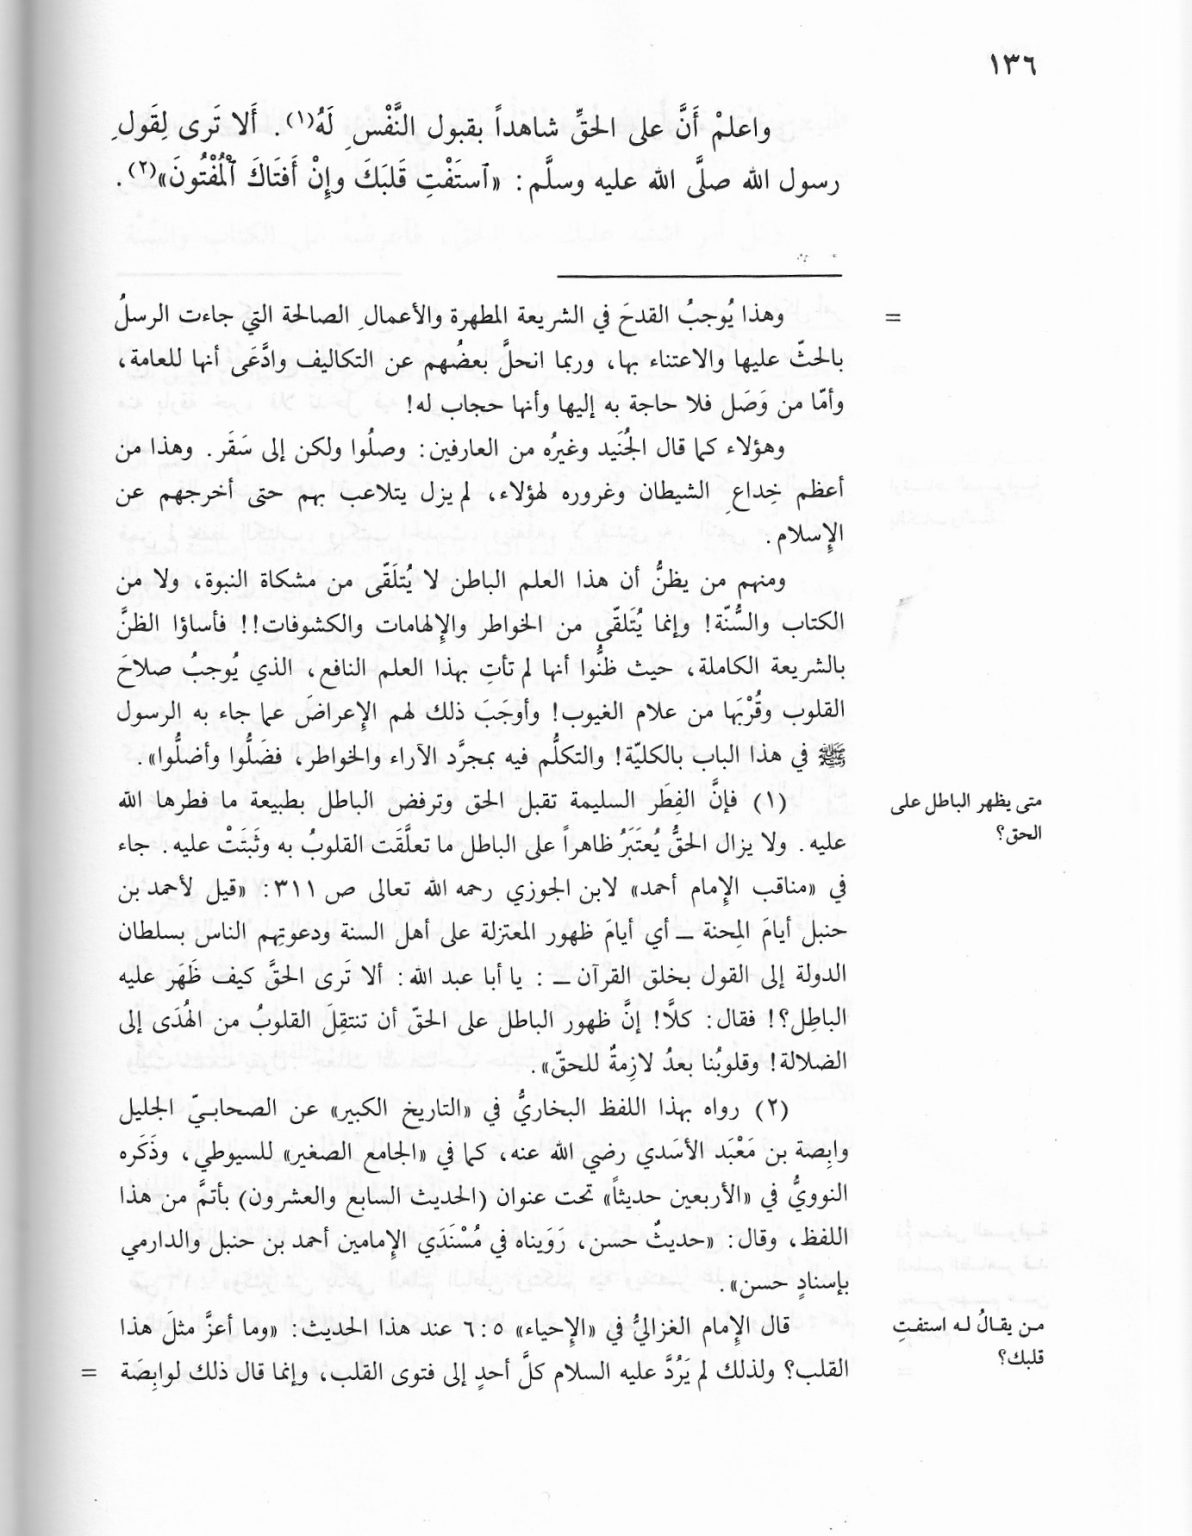 ١٣٦
واعلمْ أَنَّ على الحقِّ شاهداً بقبول النَّفْسِ لَهُ(١). أَلا تَرى لِقَولِ
رسول الله صلَّى الله عليه وسلَّم: «ٱستَفْتِ قَلبَكَ وإِنْ أَفتَاكَ ٱلْمُفْتُونَ»(٢).
= وهذا يُوجبُ القدحَ في الشريعة المطهرة والأعمالِ الصالحة التي جاءت الرسلُ
بالحثّ عليها والاعتناء بها، وربما انحلَّ بعضُهم عن التكاليف وادَّعَى أنها للعامة،
وأمّا من وَصَل فلا حاجة به إليها وأنها حجاب له!
وهؤلاء كما قال الجُنَيد وغيرُه من العارفين: وصلُوا ولكن إلى سَقَر. وهذا من
أعظم خِداعِ الشيطان وغروره لهؤلاء، لم يزل يتلاعب بهم حتى أخرجهم عن
الإِسلام.
ومنهم من يظنُّ أن هذا العلم الباطن لا يُتلَقّى من مشكاة النبوة، ولا من
الكتاب والسُّنّة! وإنما يُتَلقّى من الخواطر والإِلهامات والكشوفات!! فأساؤا الظنَّ
بالشريعة الكاملة، حيث ظنُّوا أنها لم تأتِ بهذا العلم النافع، الذي يُوجبُ صلاحَ
القلوب وقُرْبَها من علام الغيوب! وأوجَبَ ذلك لهم الإِعراضَ عما جاء به الرسول
ﷺ في هذا الباب بالكليّة! والتكلُّم فيه بمجرَّد الآراء والخواطر، فضَلُّوا وأضلُّوا».
متى يظهر الباطل على
الحق؟
(١) فإنَّ الفِطَر السليمة تقبل الحق وترفض الباطل بطبيعة ما فطرها الله
عليه. ولا يزال الحقُّ يُعتَبَرُ ظاهراً على الباطل ما تعلَّقَت القلوبُ به وثَبَتَتْ عليه. جاء
في «مناقب الإِمام أحمد» لابن الجوزي رحمه الله تعالى ص ٣١١: «قيل لأحمد بن
حنبل أيامَ المِحنة ــ أي أيامَ ظهور المعتزلة على أهل السنة ودعوتِهم الناس بسلطان
الدولة إلى القول بخلق القرآن ــ : يا أبا عبد الله: ألا تَرى الحقَّ كيف ظَهَر عليه
الباطِل؟! فقال: كلَّا! إنَّ ظهور الباطل على الحقّ أن تنتقِلَ القلوبُ من الهُدَى إلى
الضلالة! وقلوبُنا بعدُ لازِمةٌ للحقّ».
(٢) رواه بهذا اللفظ البخاريُّ في «التاريخ الكبير» عن الصحابـيّ الجليل
وابِصة بن مَعْبَد الأسَدي رضي الله عنه، كما في «الجامع الصغير» للسيوطي، وذَكَره
النوويُّ في «الأربعين حديثاً» تحت عنوان (الحديث السابع والعشرون) بأتمَّ من هذا
اللفظ، وقال: «حديثٌ حسن، رَوَيناه في مُسْنَدَي الإِمامين أحمد بن حنبل والدارمي
بإسنادٍ حسن».
مـن يقـالُ لـه استفتِ
قلبك؟
قال الإِمام الغزاليُّ في «الإِحياء» ٥: ٦ عند هذا الحديث: «وما أعزَّ مثلَ هذا
القلب؟ ولذلك لم يَرُدَّ عليه السلام كلَّ أحدٍ إلى فتوى القلب، وإنما قال ذلك لوابِصَة =